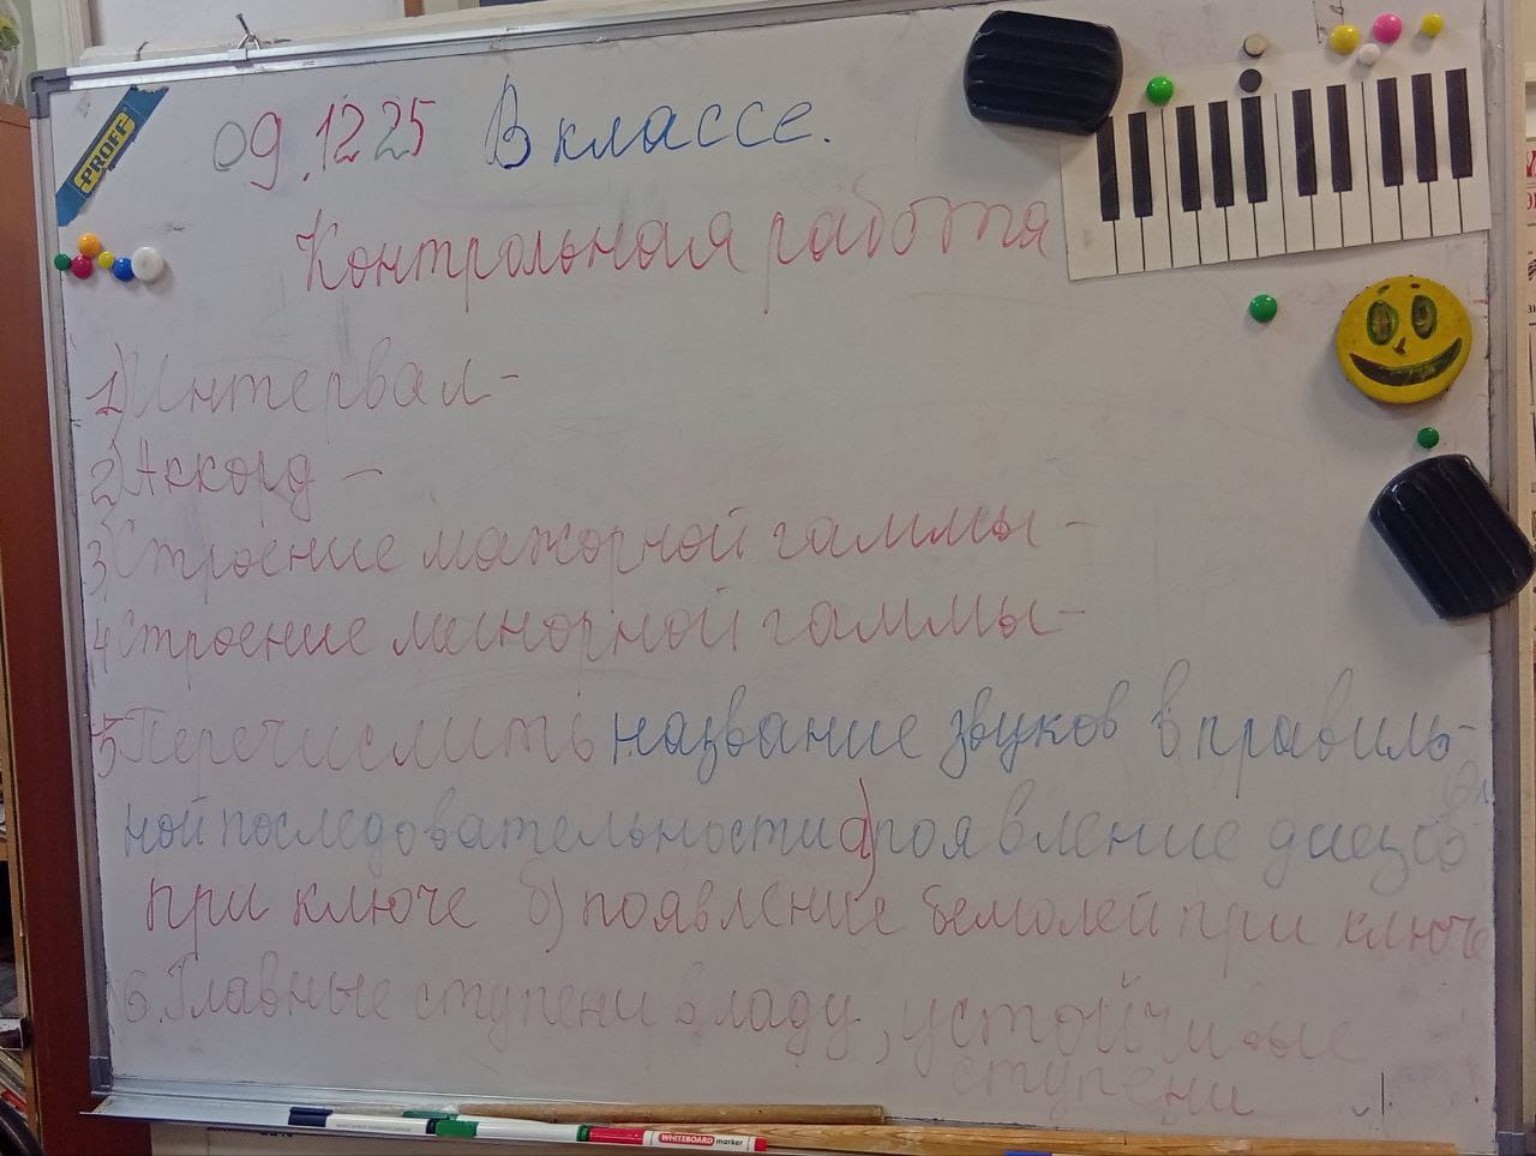 PROFF
09.12 25 В классе.
Контрольная работа
1) Интервал -
2) Аккорд -
3) Строение мажорной гаммы -
4 Строение минорной гаммы -
5 Перечислить название звуков в правиль-
ной последовательности а) появление диезов
при ключе б) появление бемолей при ключе
6. Главные ступени в ладу, устойчивые
ступени
WHITEBOARD marker